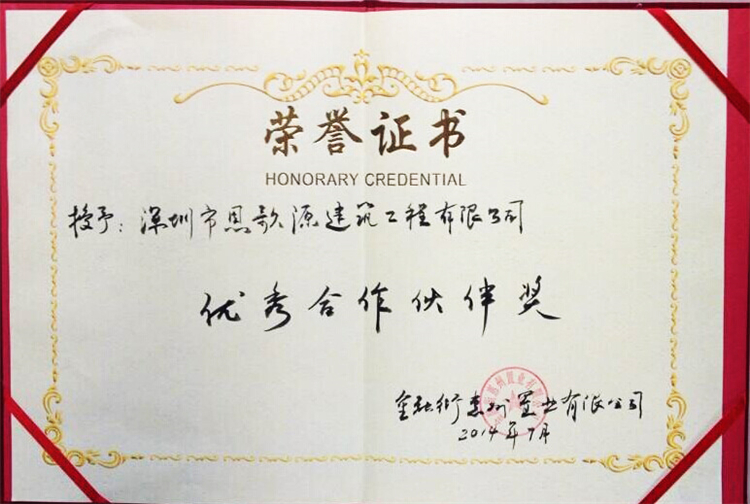 荣誉证书
HONORARY CREDENTIAL
授予：深圳市恩歌源建筑工程有限公司
优秀合作伙伴奖
金融街惠州置业有限公司
2014年7月